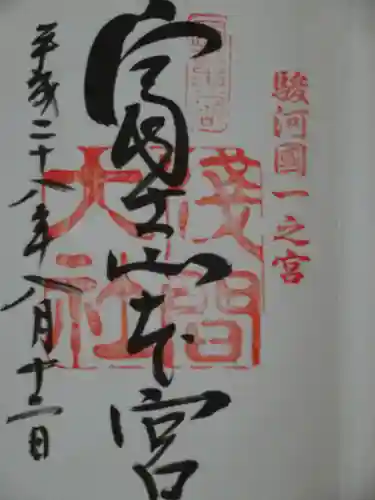 駿河國一之宮
富士山本宮
淺間大社
平成二十八年八月十二日